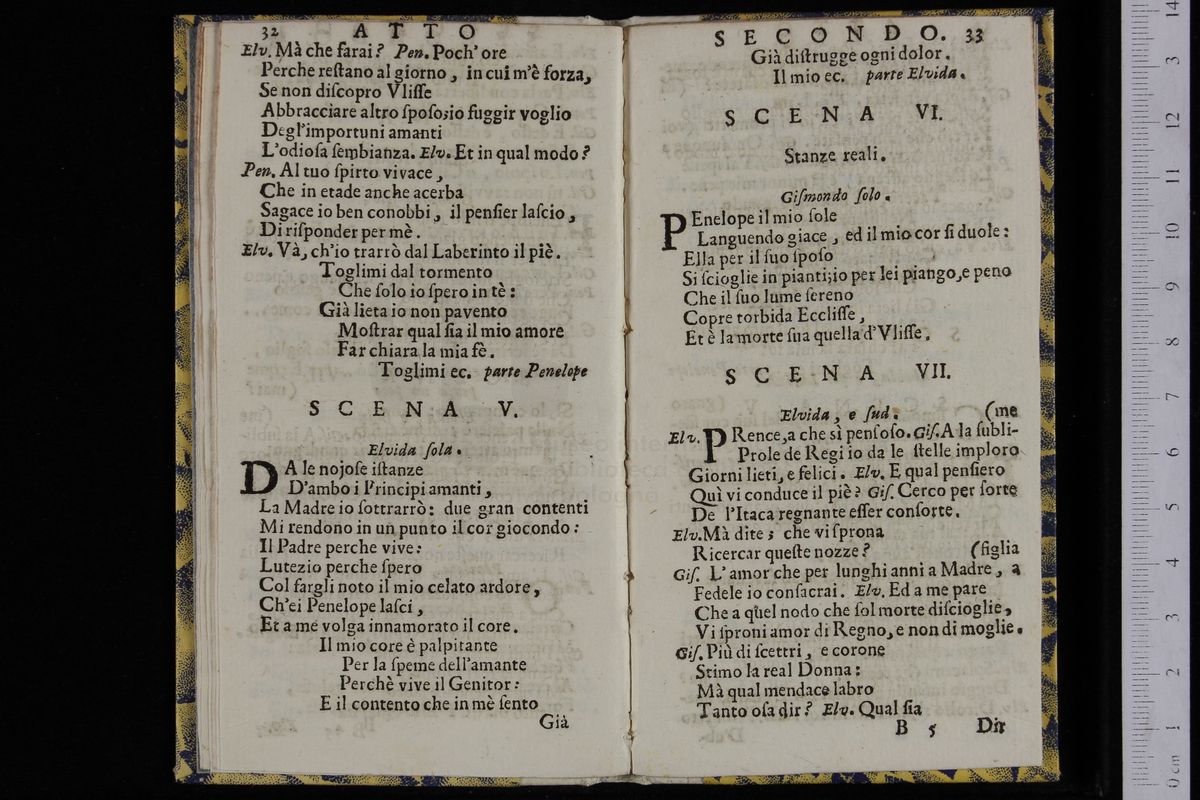 32 ATTO
Elv. Mà che farai? Pen. Poch' ore
Perche reſtano al giorno, in cui m'è forza,
Se non diſcopro Vliſſe
Abbracciare altro ſpoſo; io fuggir voglio
Degl'importuni amanti
L'odioſa ſembianza. Elv. Et in qual modo?
Pen. Al tuo ſpirto vivace,
Che in etade anche acerba
Sagace io ben conobbi, il penſier laſcio,
Di riſponder per mè.
Elv. Và, ch'io trarrò dal Laberinto il piè.
Toglimi dal tormento
Che ſolo io ſpero in tè:
Già lieta io non pavento
Moſtrar qual ſia il mio amore
Far chiara la mia fè.
Toglimi ec. parte Penelope
SCENA V.
Elvida ſola.
DA le nojoſe iſtanze
D'ambo i Principi amanti,
La Madre io ſottrarrò: due gran contenti
Mi rendono in un punto il cor giocondo:
Il Padre perche vive:
Lutezio perche ſpero
Col fargli noto il mio celato ardore,
Ch'ei Penelope laſci,
Et a me volga innamorato il core.
Il mio core è palpitante
Per la ſpeme dell'amante
Perchè vive il Genitor:
E il contento che in mè ſento
Già
SECONDO. 33
Già diſtrugge ogni dolor.
Il mio ec. parte Elvida.
SCENA VI.
Stanze reali.
Giſmondo ſolo.
PEnelope il mio ſole
Languendo giace, ed il mio cor ſi duole:
Ella per il ſuo ſpoſo
Si ſcioglie in pianti; io per lei piango, e peno
Che il ſuo lume ſereno
Copre torbida Eccliſſe,
Et è la morte ſua quella d'Vliſſe.
SCENA VII.
Elvida, e ſud. (me
Elv. PRence, a che sì penſoſo. Giſ. A la ſubli-
Prole de Regi io da le ſtelle imploro
Giorni lieti, e felici. Elv. E qual penſiero
Quì vi conduce il piè? Giſ. Cerco per ſorte
De l'Itaca regnante eſſer conſorte.
Elv. Mà dite; che vi ſprona
Ricercar queſte nozze? (figlia
Giſ. L'amor che per lunghi anni a Madre, a
Fedele io conſacrai. Elv. Ed a me pare
Che a quel nodo che ſol morte diſcioglie,
Vi ſproni amor di Regno, e non di moglie.
Giſ. Più di ſcettri, e corone
Stimo la real Donna:
Mà qual mendace labro
Tanto oſa dir? Elv. Qual ſia
B 5 Dir